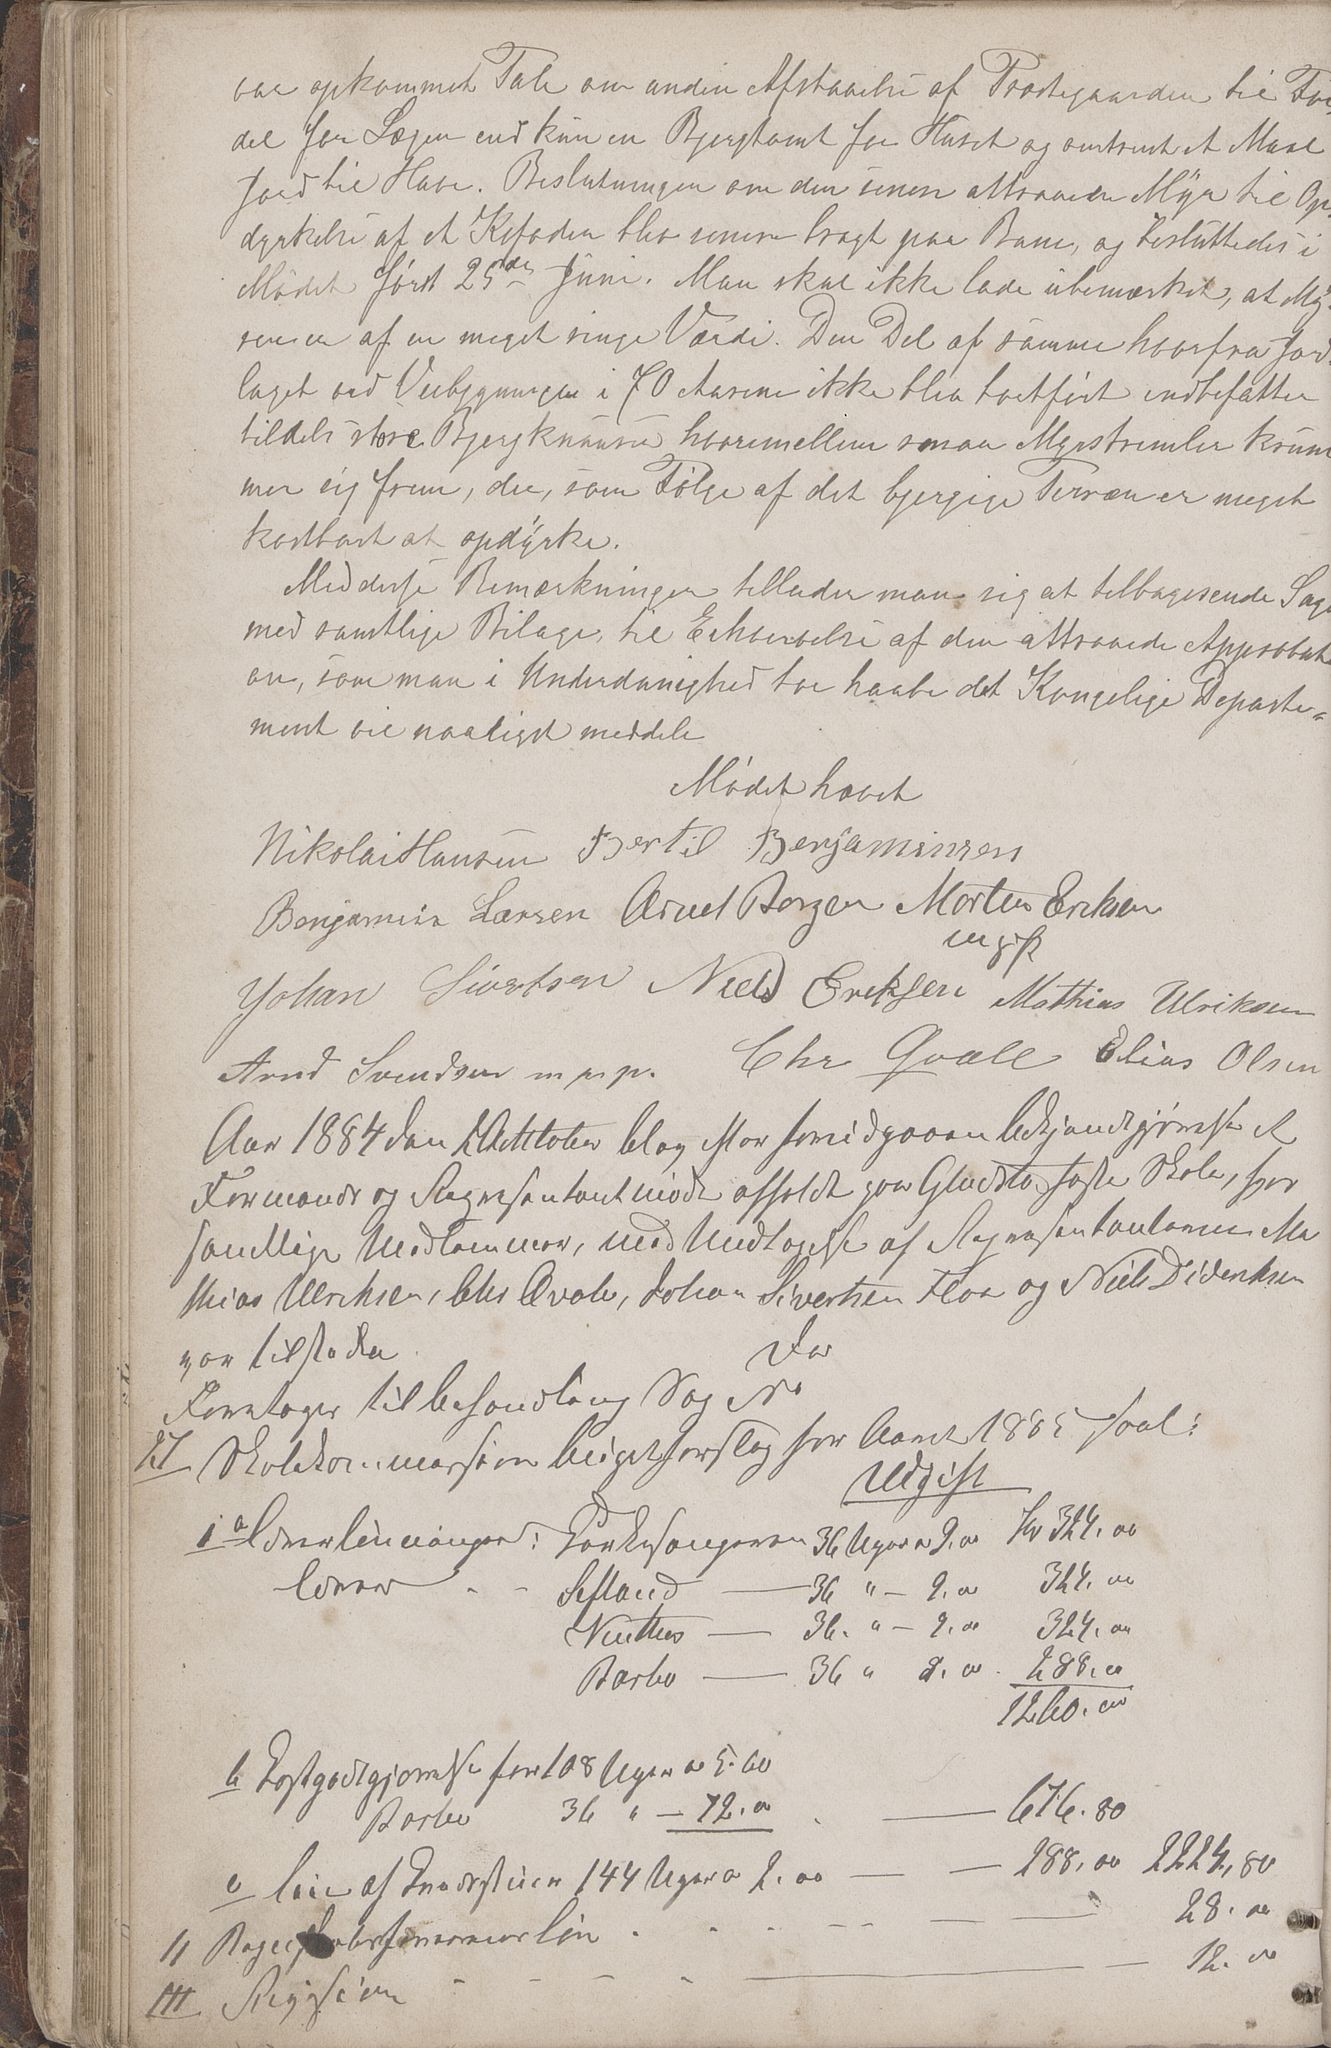 var opkommet Tale om anden Afstaaelse af Præstegaarden til For-
del for Lægen end kun en Bjergtomt for Huset og omtrent et Maal
Jord til Have. Beslutningen om den senere attraaede Myr til Op-
dyrkelse af et Kofoder blev senere bragt paa Bane, og besluttedes i
Mødet først 25de Juni. Man skal ikke lade ubemærket, at My-
ren er af en meget ringe Værdi. Den Del af samme hvorfra Jord-
laget ved Veibygningen i 70 Aarene ikke blev bortført indbefatter
tildels store Bjergknauser hvorimellem smaa Myrstrimler krum
mer sig frem, der, som Følge af det bjergige Terræn er meget
kostbart at opdyrke.
Med disse Bemærkninger tillader man sig at tilbagesende Sagen
med samtlige Bilage, til Erhvervelse af den attraaede Approbati
on, som man i Underdanighed tør haabe det Kongelige Departe-
ment vil naadigst meddele
Mødet hævet
Nikolai Hansen Bertil Benjaminsen
Benjamin Larsen Arnt Borgen Morten Eriksen
Johan Sivertsen Niels Eriksen Mathias Ulriksen
Arnt Svendsen m. p. p. Chr Qvale Elias Olsen
Aar 1884 den Oktober blev efter foregaaende bekjendtgjørelse et
Formands og Repræsentantmøde afholdt paa faste Skole, hvor
samtlige Medlemmer, med Undtagelse af Repræsentanterne Ma
thias Ulriksen, Chr Qvale, Johan Sivertsen Floa og Niels Dideriksen
var tilstede.
Der
Foretages til behandling Sag No
27 Skolekommissionens budgetforslag for Aaret 1885 saal:
Udgift
I a Lærerlønninger: 36 Uger a 9.00 Kr 324.00
Lærer - - 36 " - 9.00 324.00
— 36. " - 9.00 324.00
Barbo — 36 " 8.00 288.00
1260.00
b Kostgodtgjørelse for 108 Uger a 5.60
Barbo 36 " — 12.00 — 676.80
c Leie af 144 Uger a 2.00 — — 288.00 2224,80
II 28.00
III 12.00